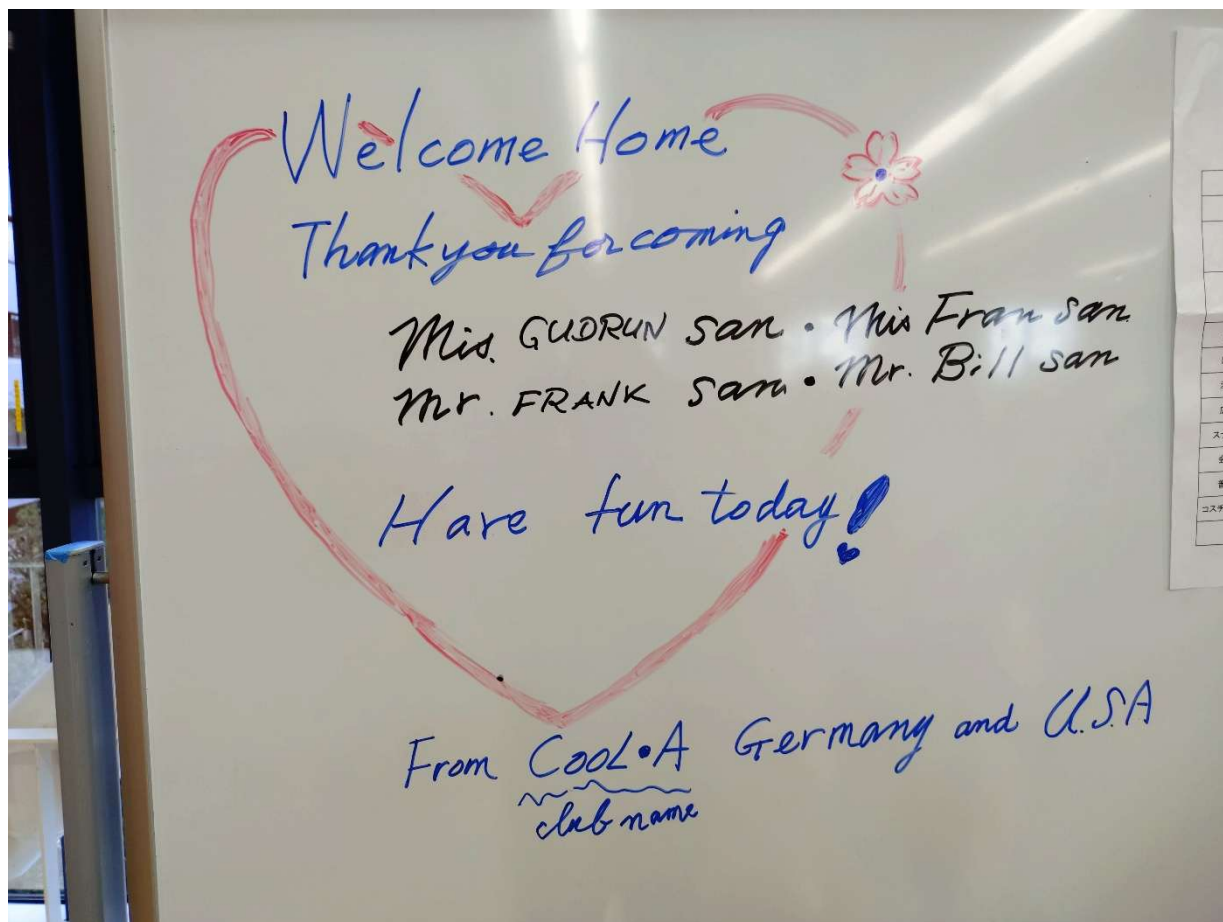 Welcome Home
Thank you for coming
Mis. GUDRUN san・Mis Fran san
Mr. FRANK san・Mr. Bill san
Have fun today!
From COOL・A Germany and U.S.A
club name